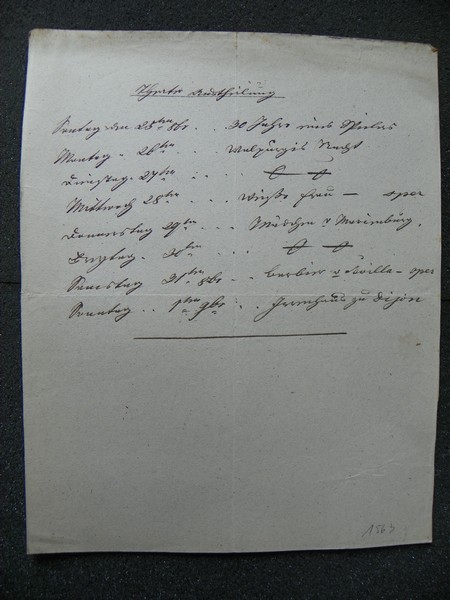 Theater Austheilung
Sontag den 25ten 8br. . . 30 Jahre eines Spielers
Montag - 26ten . . Walpurgis Nacht
Dienstag - 27ten . . .
Mittwoch 28ten . . . Weiße Frau — oper
Donnerstag 29ten . . Mädchen v Marienburg.
Freytag - 30ten . . .
Samstag 31ten 8br - Barbier v Sevilla - oper
Sonntag . . 1ten 9br . . zu Dijon
1563